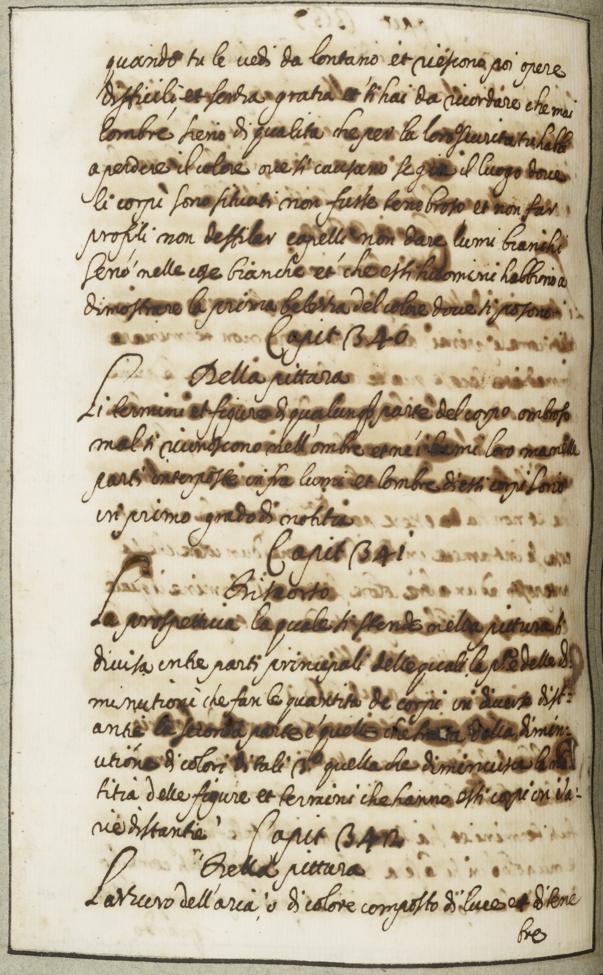 quando tu le vedi da lontano et riescono poi opere
difficili et senza gratia et ti hai da ricordare che mai
lombre sieno di qualita che per la loro scurita tu habb
a perdere il colore ove si causano se gia il luogo dove
li corpi sono situati non fusse tenebroso et non far
profili non desfilar capelli non dare lumi bianchi
senò nelle cose bianche et che essi lumi habbino a
dimostrare la prima belezza del colore dove si posono
Capit 340
Della pittura
Li termini et figure di qualunqs parte del corpo ombroso
mal si conoscono nell'ombre et ne i lumi loro ma nelle
parti interposte infra lumi et lombre di essi corpi sono
in primo grado di notitia
Capit 341
Discorso
La prospettiva la quale si stende nella pittura si
divisa in tre parti principali delle quali la pa. è delle di-
minutioni che fan le quantita de corpi in diverse dist-
antie la seconda parte è quella che tratta della dimin-
utione di colori di tali 3a quella che diminuisca la no
titia delle figure et termini che hanno essi corpi in va-
rie distantie
Capit 342
Della pittura
L'azzurro dell'aria è di colore composto di luce et di tene
bre